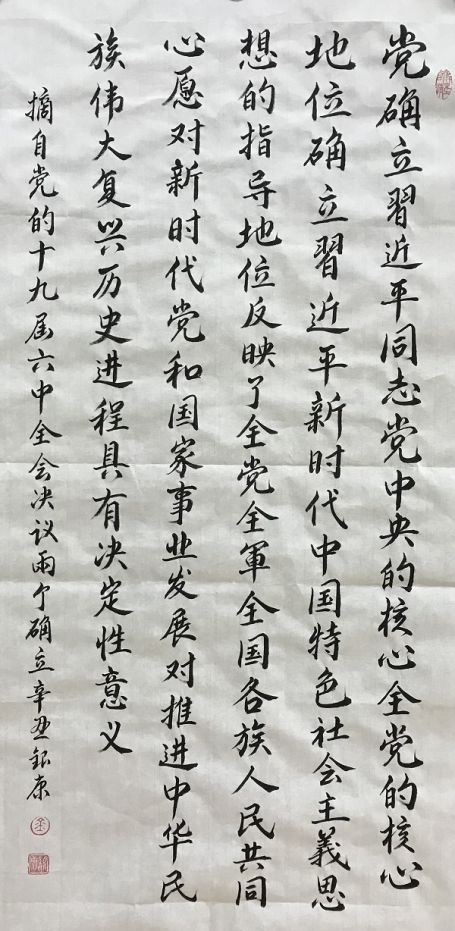 党确立習近平同志党中央的核心全党的核心
地位确立習近平新时代中国特色社会主義思
想的指导地位反映了全党全軍全国各族人民共同
心愿对新时代党和国家事业发展对推进中华民
族伟大复兴历史进程具有决定性意义
摘自党的十九届六中全会决议兩个确立辛丑